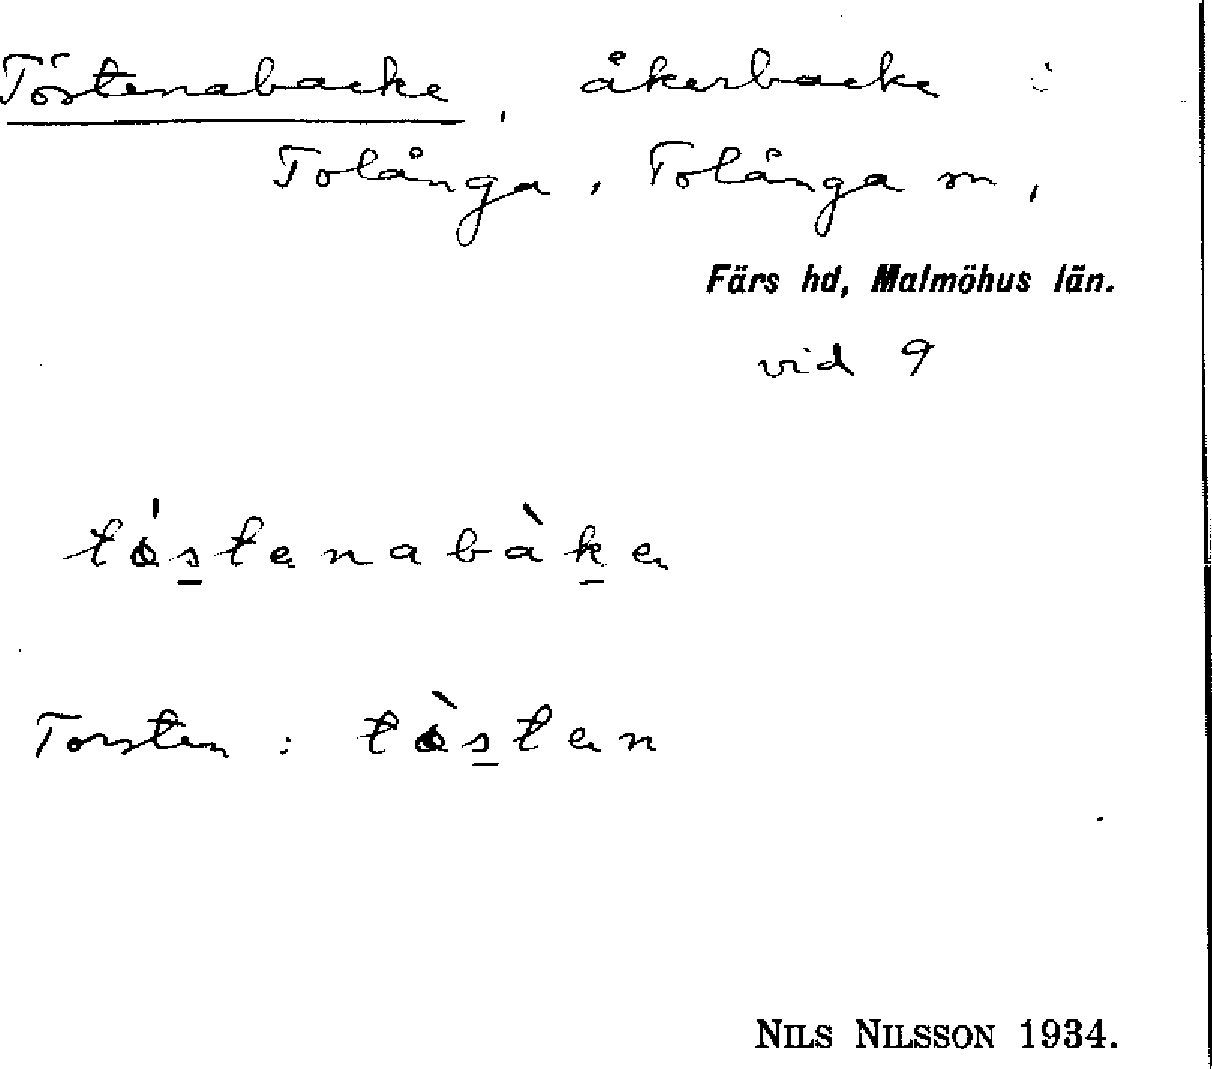 Töstenabacke, åkerbacke :
Tolånga, Tolånga sn,
Färs hd, Malmöhus län.
vid 9
tóstenabàke
Torsten : tòsten
NILS NILSSON 1934.